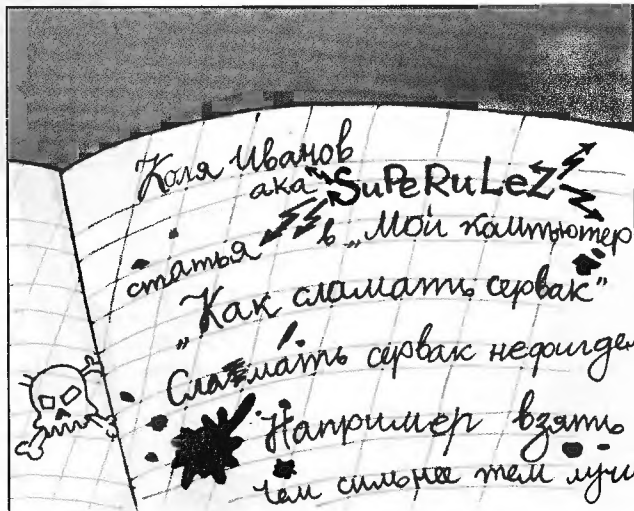 Коля Иванов
ака SuPeRuLeZ
статья в „Мой кампьютер
„Как сламать сервак"
Сламать сервак нефигдел
Например взять
чем сильнее тем лучш